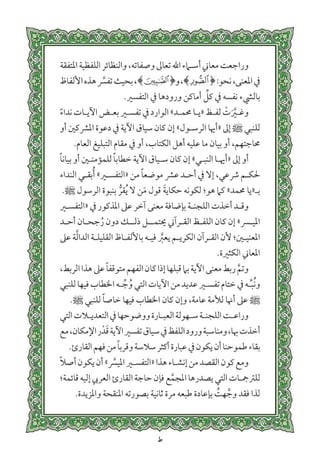 وراجعت معاني أسماء الله تعالى وصفاته، والنظائر اللفظية المتفقة
في المعنى، نحو: ﴿ٱلصُّورِ﴾، و﴿ٱلْبَيِّنَٰتِ﴾، بحيث تفسَّر هذه الألفاظ
بالشيء نفسه في كلّ أماكن ورودها في التفسير.
وغـيَّرْتُ لفـظ «يـا محمـد» الوارد في تفسـير بعـض الآيـات نداءً
للنبي ﷺ إلى «أيها الرسـول» إن كان سياق الآية في دعوة المشركين أو
محاجتهم، أو بيان ما عليه أهل الكتاب، أو في مقام التبليغ العام.
أو إلى «أيهـا النبـي» إن كان سـياق الآية خطاباً للمؤمنـين أو بياناً
لحكـم شرعي، إلا في أحـد عشر موضعـاً من «التفسـير» أُبقـي النداء
بـ«يا محمد» كما هو؛ لكونه حكايةَ قول مَن لا يُقرُّ بنبوة الرسول ﷺ.
وقـد أخذت اللجنـة بإضافة معنى آخر على المذكور في «التفسـير
الميسر» إن كان اللفـظ القـرآني يحتمـل ذلـك دون رُجحـان أحـد
المعنيـين؛ لأن القـرآن الكريـم يعبَّر فيـه بالألفـاظ القليلـة الدالَّة على
المعاني الكثيرة.
وتمَّ ربط معنى الآية بما قبلها إذا كان الفهم متوقفـاً على هذا الربط،
ونُبِّـه في ختام تفسـير عديد من الآيات التي وُجِّـه الخطاب فيها للنبي
ﷺ على أنها للأمة عامة، وإن كان الخطاب فيها خاصاً للنبي ﷺ.
وراعـت اللجنـة سـهولة العبـارة ووضوحها في التعديـلات التي
أخذت بها، ومناسبة ورود اللفظ في سياق تفسير الآية قَدْرَ الإمكان، مع
بقاء طموحنا أن يكون في عبارة أكثر سلاسة وقرباً من فهم القارئ.
ومع كون القصد من إنشـاء هذا «التفسـير الميسَّر» أن يكون أصلاً
للترجمات التي يصدرها المجمَّع فإن حاجة القارئ العربي إليه قائمة؛
لذا فقد وجَّهتُ بإعادة طبعه مرة ثانية بصورته المنقحة والمزيدة.
ط